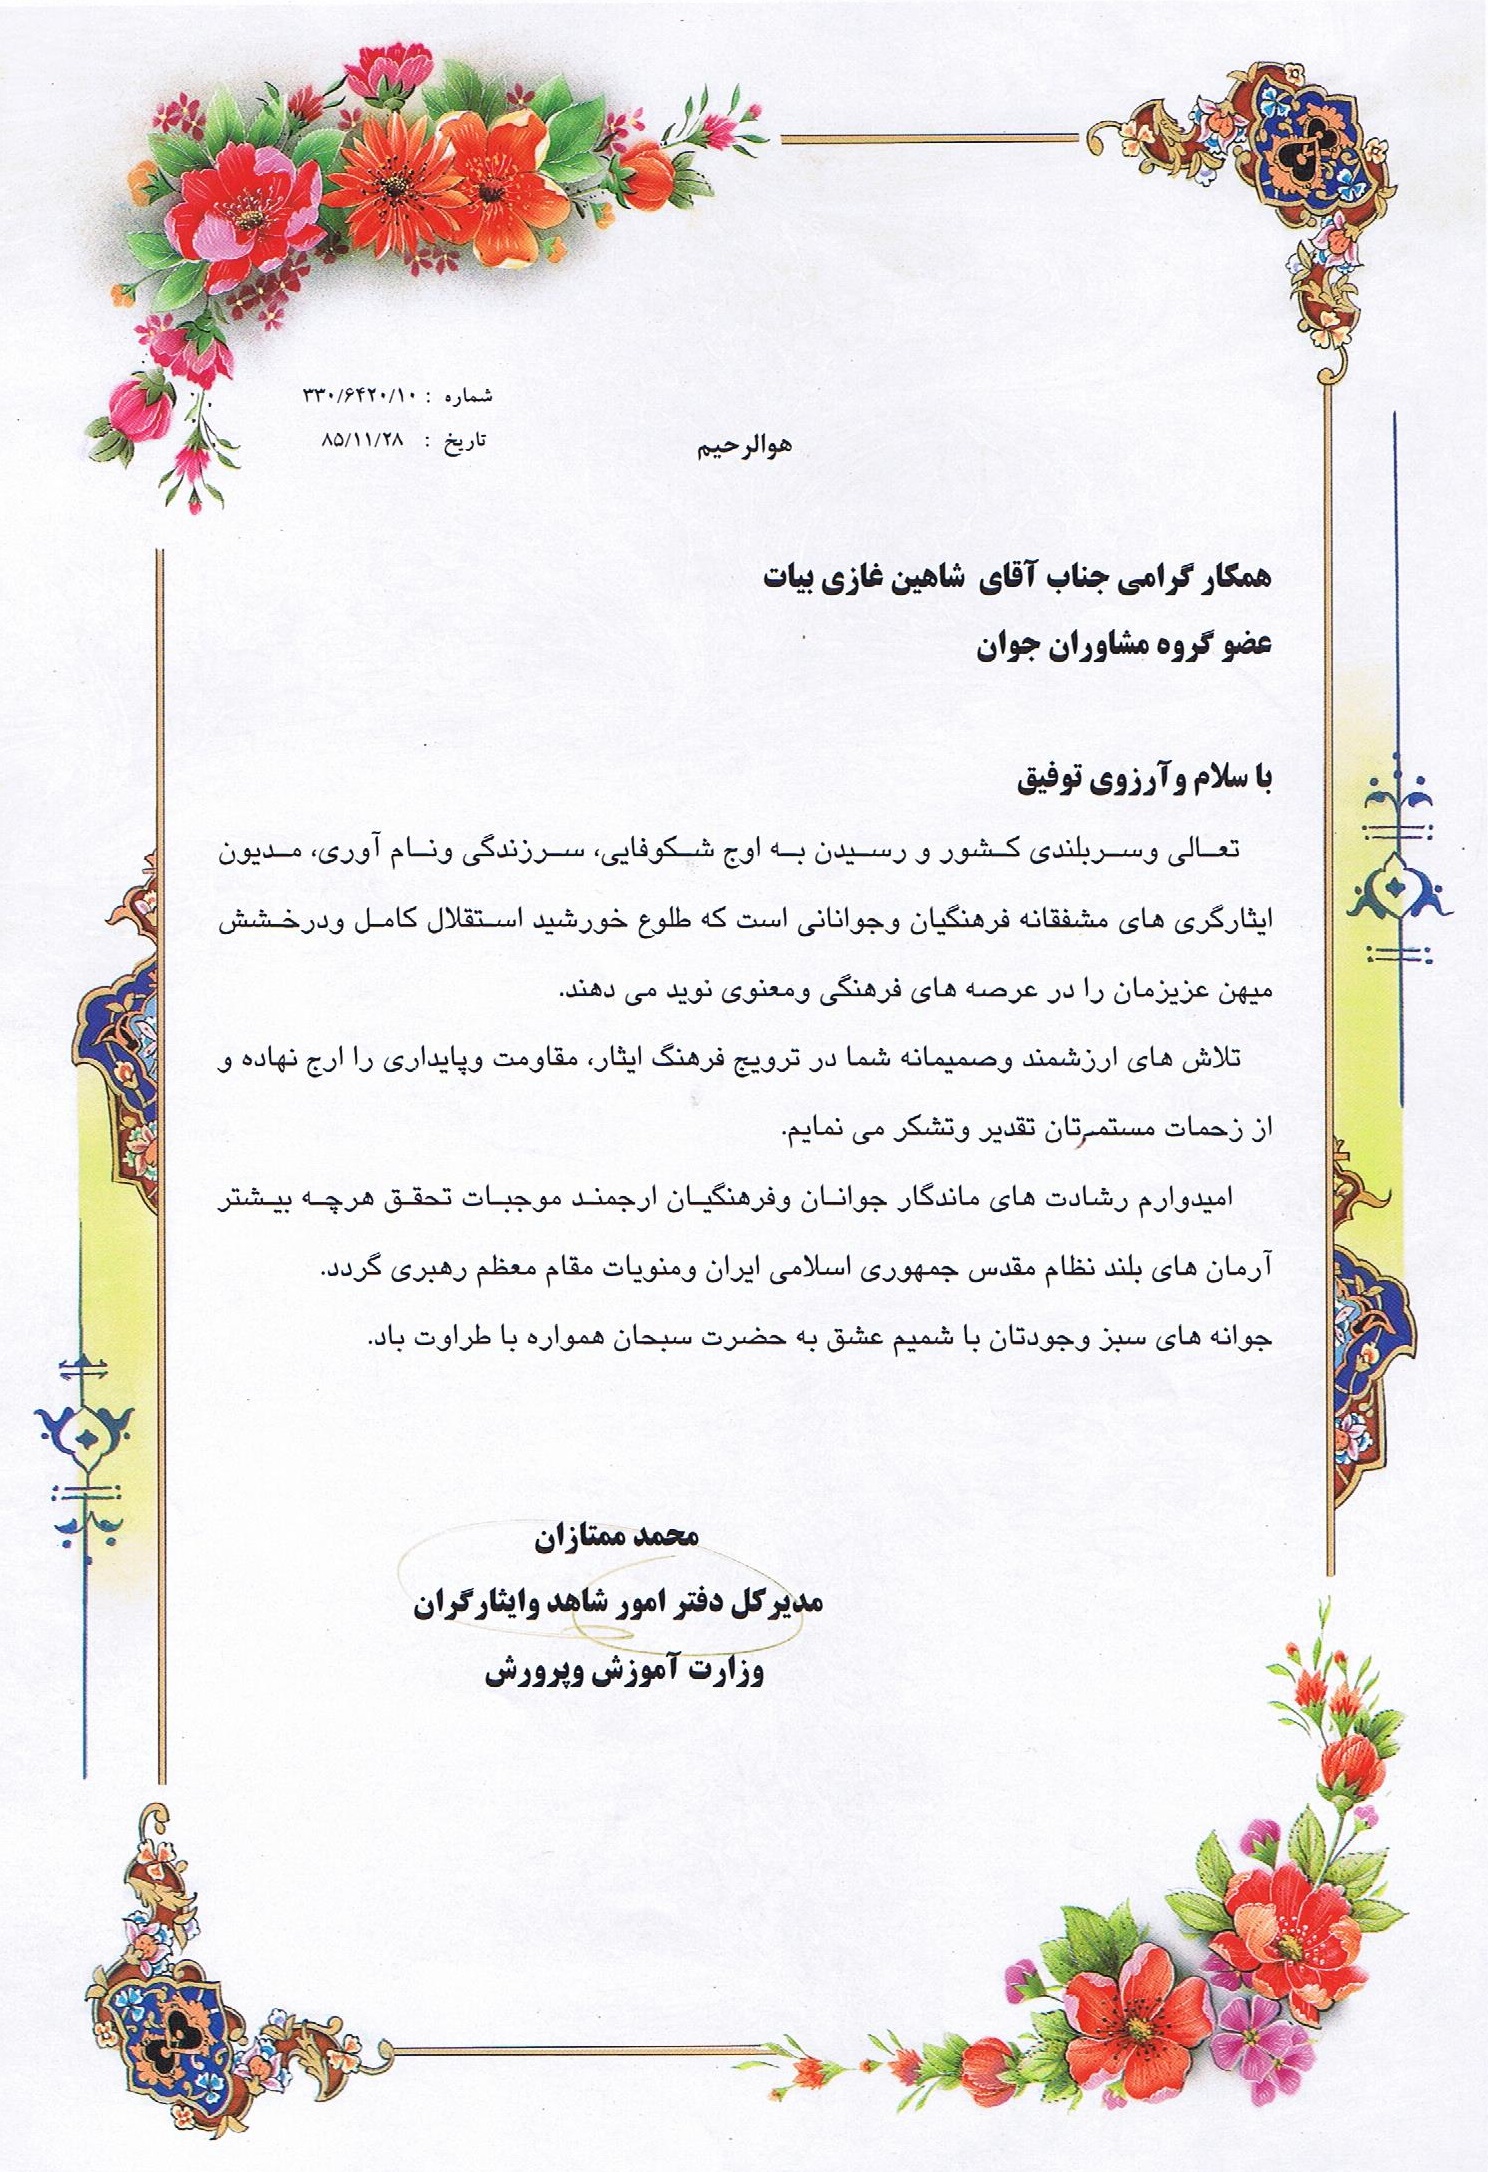 شماره : ۳۳۰/۶۴۲۰/۱۰
تاریخ : ۸۵/۱۱/۲۸
هوالرحیم
همکار گرامی جناب آقای شاهین غازی بیات
عضو گروه مشاوران جوان
با سلام وآرزوی توفیق
تعالی وسربلندی کشور و رسیدن به اوج شکوفایی، سرزندگی ونام آوری، مدیون
ایثارگری های مشفقانه فرهنگیان وجوانانی است که طلوع خورشید استقلال کامل ودرخشش
میهن عزیزمان را در عرصه های فرهنگی ومعنوی نوید می دهند.
تلاش های ارزشمند وصمیمانه شما در ترویج فرهنگ ایثار، مقاومت وپایداری را ارج نهاده و
از زحمات مستمرتان تقدیر وتشکر می نمایم.
امیدوارم رشادت های ماندگار جوانان وفرهنگیان ارجمند موجبات تحقق هرچه بیشتر
آرمان های بلند نظام مقدس جمهوری اسلامی ایران ومنویات مقام معظم رهبری گردد.
جوانه های سبز وجودتان با شمیم عشق به حضرت سبحان همواره با طراوت باد.
محمد ممتازان
مدیرکل دفتر امور شاهد وایثارگران
وزارت آموزش وپرورش